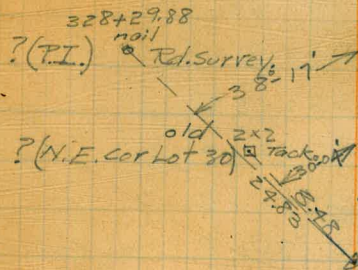 328+29.88
nail
?(P.I.) Rd. Survey
38°-17'
old
2x2
?(N.E. Cor Lot 30) Tack
24.83
8.48